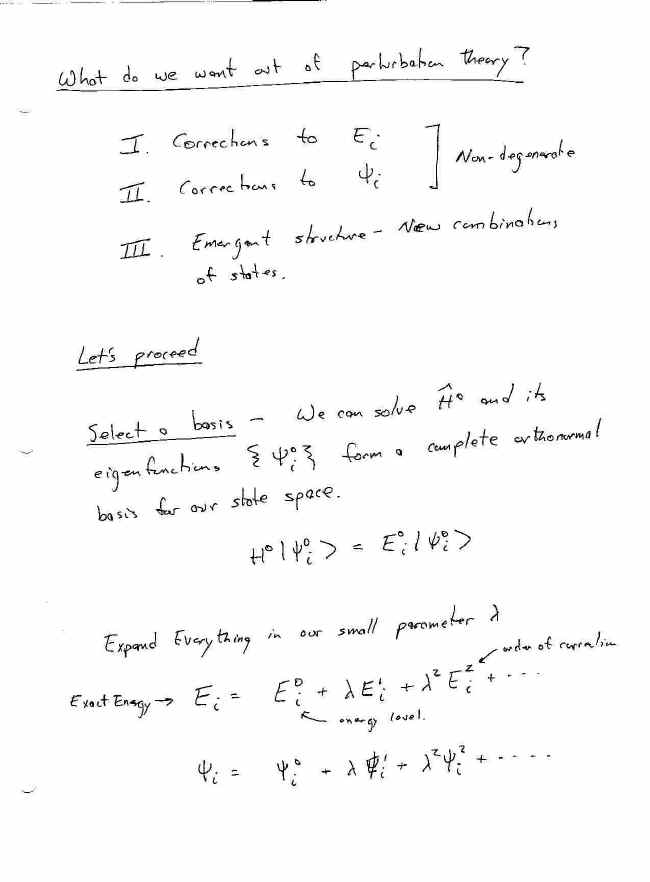 What do we want out of perturbation theory?
I. Corrections to Eᵢ
II. Corrections to ψᵢ
Non-degenerate
III. Emergent structure - New combinations
of states.
Let's proceed
Select a basis - We can solve Ĥ⁰ and its
eigenfunctions {ψᵢ⁰} form a complete orthonormal
basis for our state space.
H⁰|ψᵢ⁰> = Eᵢ⁰|ψᵢ⁰>
Expand Everything in our small parameter λ
order of correction
Exact Energy → Eᵢ = Eᵢ⁰ + λEᵢ¹ + λ²Eᵢ² + ····
energy level.
ψᵢ = ψᵢ⁰ + λψᵢ¹ + λ²ψᵢ² + ····